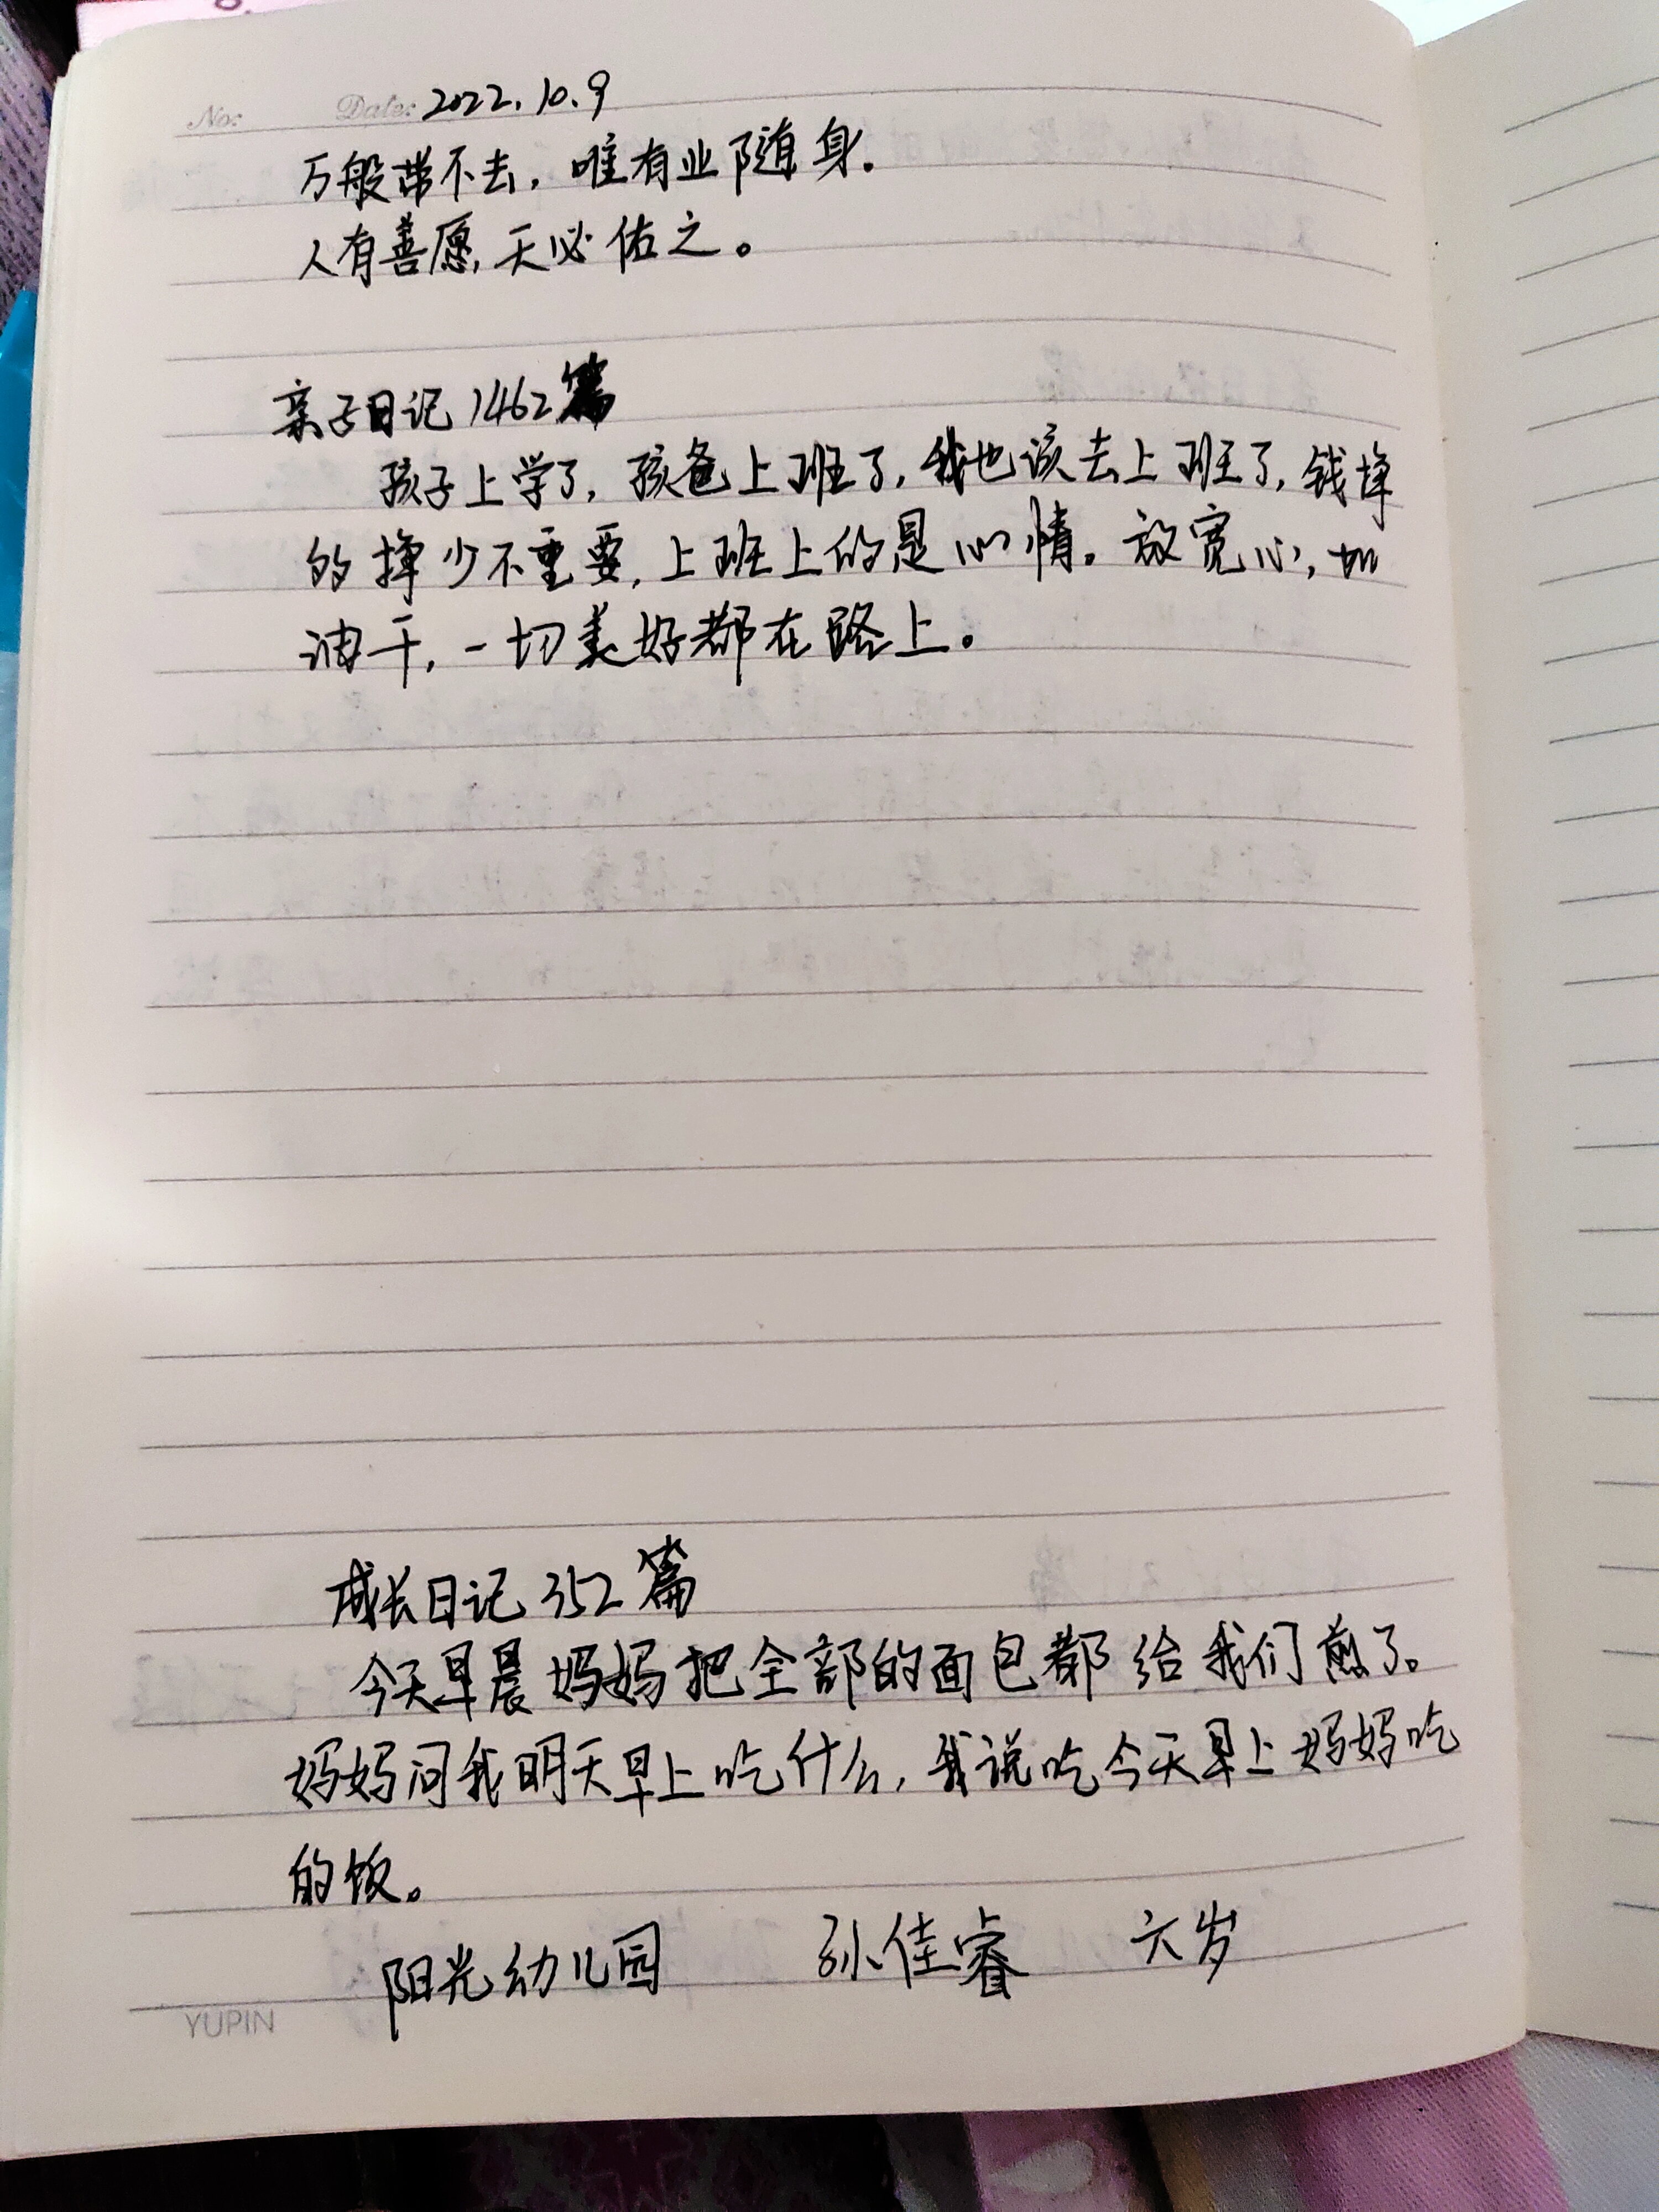 No: Date: 2022.10.9
万般带不去，唯有业随身。
人有善愿，天必佑之。
亲子日记1462篇
孩子上学了，孩爸上班了，我也该去上班了，钱挣
的挣少不重要，上班上的是心情。放宽心，加
油干，一切美好都在路上。
成长日记352篇
今天早晨妈妈把全部的面包都给我们煎了。
妈妈问我明天早上吃什么，我说吃今天早上妈妈吃
的饭。
阳光幼儿园 孙佳睿 六岁
YUPIN